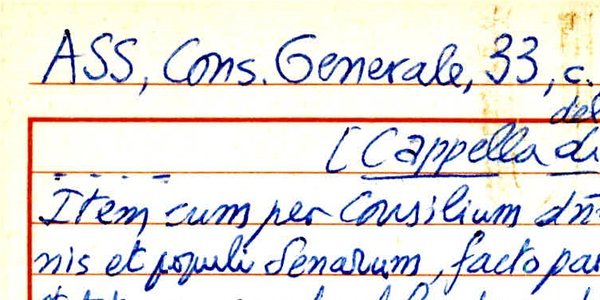 ASS, Cons. Generale, 33, c.
del
[Cappella di
Item cum per Consilium dn̄
nis et populi Senarum, facto par